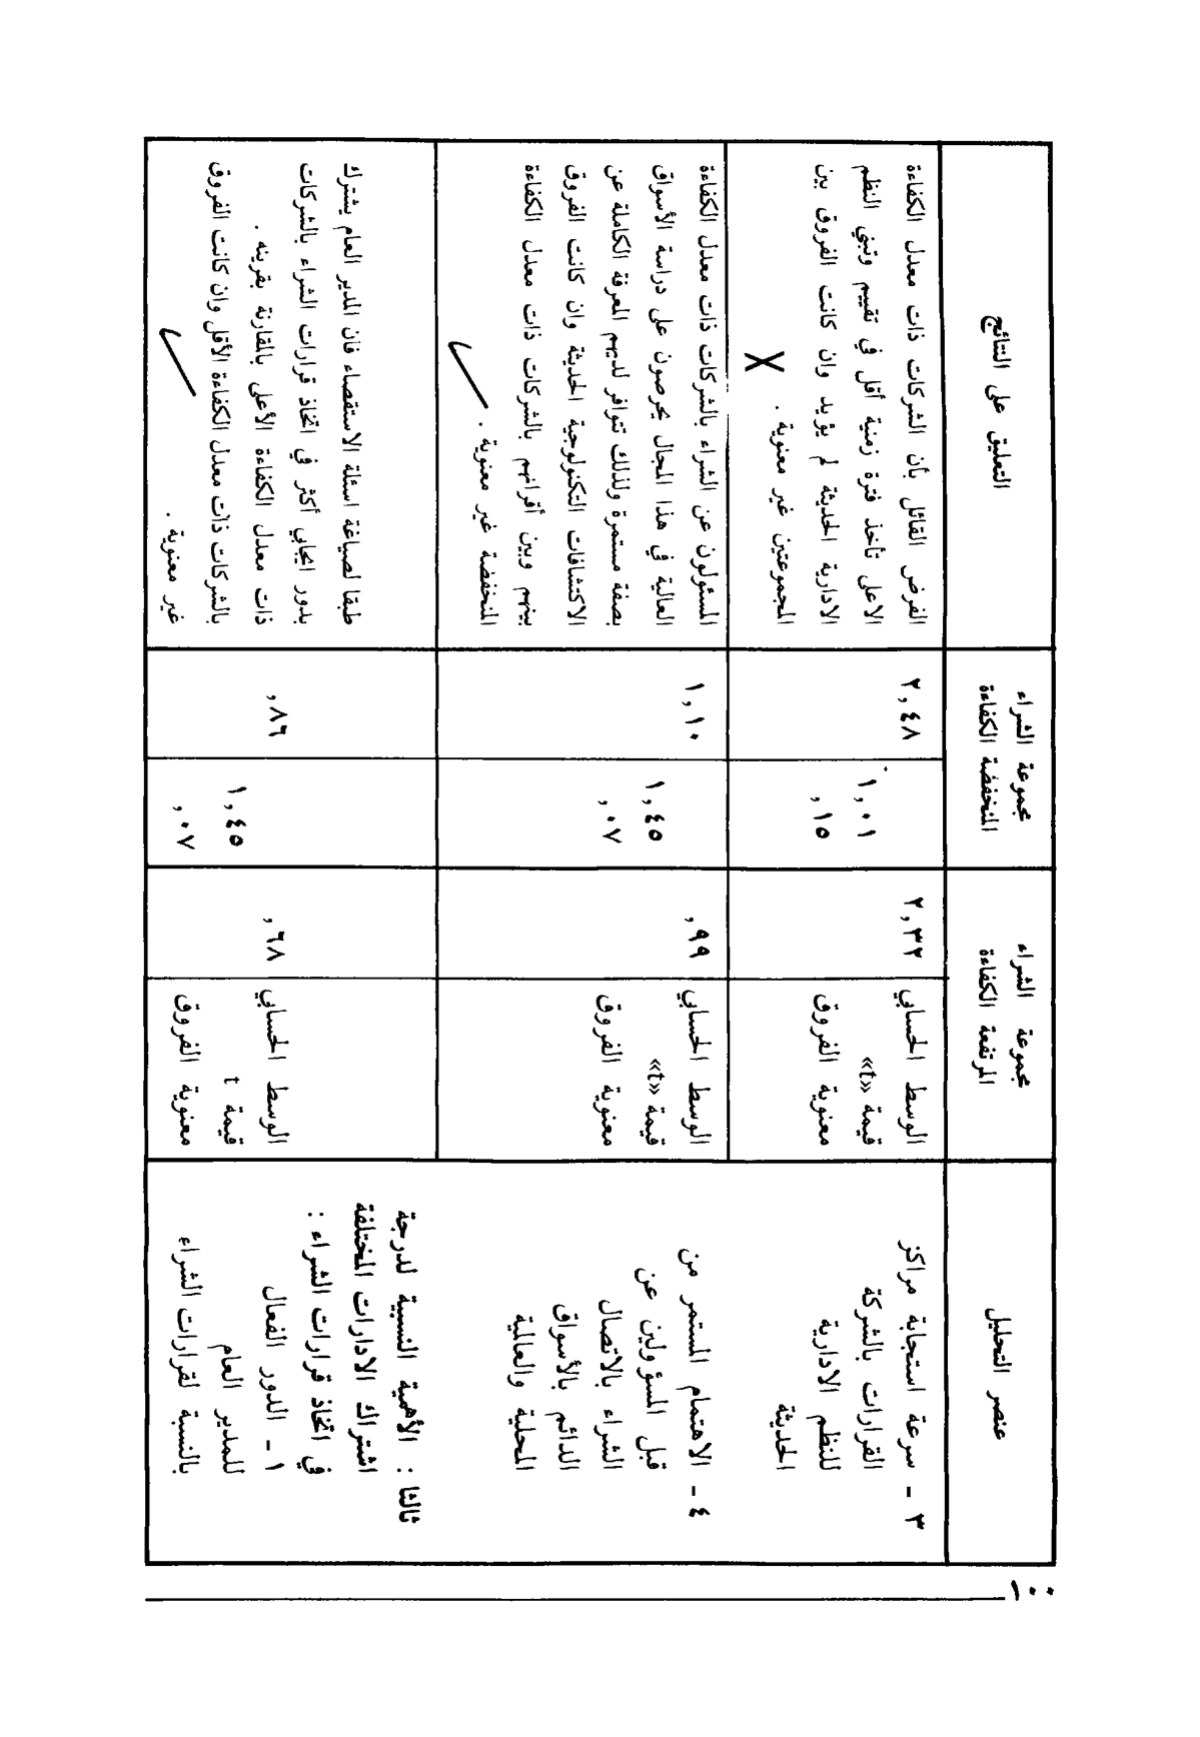 ١٠٠
عنصر التحليل
مجموعة الشراء
المرتفعة الكفاءة
مجموعة الشراء
المنخفضة الكفاءة
التعليق على النتائج
٣ - سرعة استجابة مراكز
القرارات بالشركة
للنظم الادارية
الحديثة
الوسط الحسابي
قيمة «t»
معنوية الفروق
٢,٣٢
٢,٤٨
١,٠١
,١٥
الفرض القائل بأن الشركات ذات معدل الكفاءة
الاعلى تأخذ فترة زمنية أقل في تقييم وتبني النظم
الادارية الحديثة لم يؤيد وان كانت الفروق بين
المجموعتين غير معنوية .
X
٤ - الاهتمام المستمر من
قبل المسؤولين عن
الشراء بالاتصال
الدائم بالأسواق
المحلية والعالمية
الوسط الحسابي
قيمة «t»
معنوية الفروق
,٩٩
١,١٠
١,٤٥
,٠٧
المسئولون عن الشراء بالشركات ذات معدل الكفاءة
العالية في هذا المجال يحرصون على دراسة الأسواق
بصفة مستمرة ولذلك تتوافر لديهم المعرفة الكاملة عن
الاكتشافات التكنولوجية الحديثة وان كانت الفروق
بينهم وبين أقرانهم بالشركات ذات معدل الكفاءة
المنخفضة غير معنوية .
ثالثا : الأهمية النسبية لدرجة
اشتراك الادارات المختلفة
في اتخاذ قرارات الشراء :
١ - الدور الفعال
للمدير العام
بالنسبة لقرارات الشراء
الوسط الحسابي
قيمة t
معنوية الفروق
,٦٨
,٨٦
١,٤٥
,٠٧
طبقا لصياغة اسئلة الاستقصاء فان المدير العام يشترك
بدور ايجابي أكثر في اتخاذ قرارات الشراء بالشركات
ذات معدل الكفاءة الأعلى بالمقارنة بقرينه .
بالشركات ذات معدل الكفاءة الأقل وان كانت الفروق
غير معنوية .